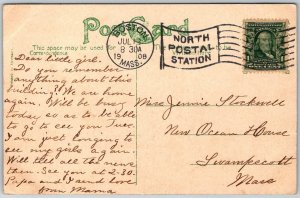 Post Card
BOSTON
JUL
8 30A
1908
MASS.
NORTH
POSTAL
STATION
This space may be used for
Correspondence
Dear little girl.
Do you remember
anything about this
building? We are home
again. Will be busy
today so as to be able
to go to see you Tues.
I am just longing to
see my girls again.
Will tell all the news
then. See you at 2-30.
Papa and I send love
from Mama
Miss Jennie Stockwell
New Ocean House
Swampscott
Mass